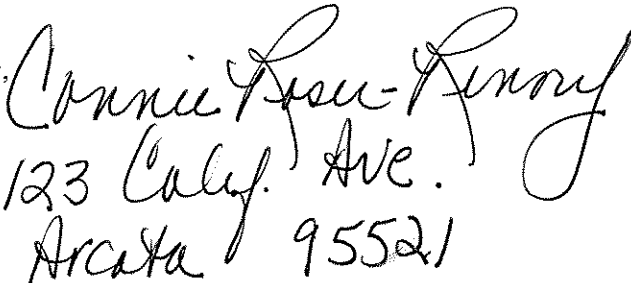 Connie Roser-Renouf
123 Calif. Ave.
Arcata 95521